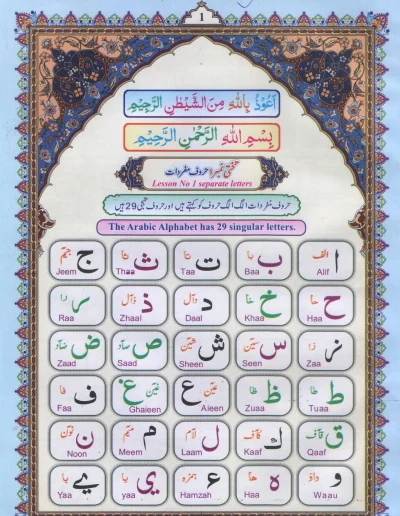 1
اَعُوْذُ بِاللّٰهِ مِنَ الشَّيْطٰنِ الرَّجِيْمِ
بِسْمِ اللّٰهِ الرَّحْمٰنِ الرَّحِيْمِ
تختی نمبر۱ حروف مفردات
Lesson No 1 separate letters
حروف مفردات الگ الگ حروف کو کہتے ہیں اور حروف تہجی 29 ہیں
The Arabic Alphabet has 29 singular letters.
ا الف ب با ت تا ث ثا ج جیم
Alif Baa Taa Thaa Jeem
ح حا خ خا د دال ذ ذال ر را
Haa Khaa Daal Zhaal Raa
ز زا س سین ش شین ص صاد ض ضاد
Zaa Seen Sheen Saad Zaad
ط طا ظ ظا ع عین غ غین ف فا
Tuaa Zuaa Aieen Ghaieen Faa
ق قاف ك کاف ل لام م میم ن نون
Qaaf Kaaf Laam Meem Noon
و واؤ ه ها ء ہمزہ ی یا ے یا
Waau Haa Hamzah yaa Yaa